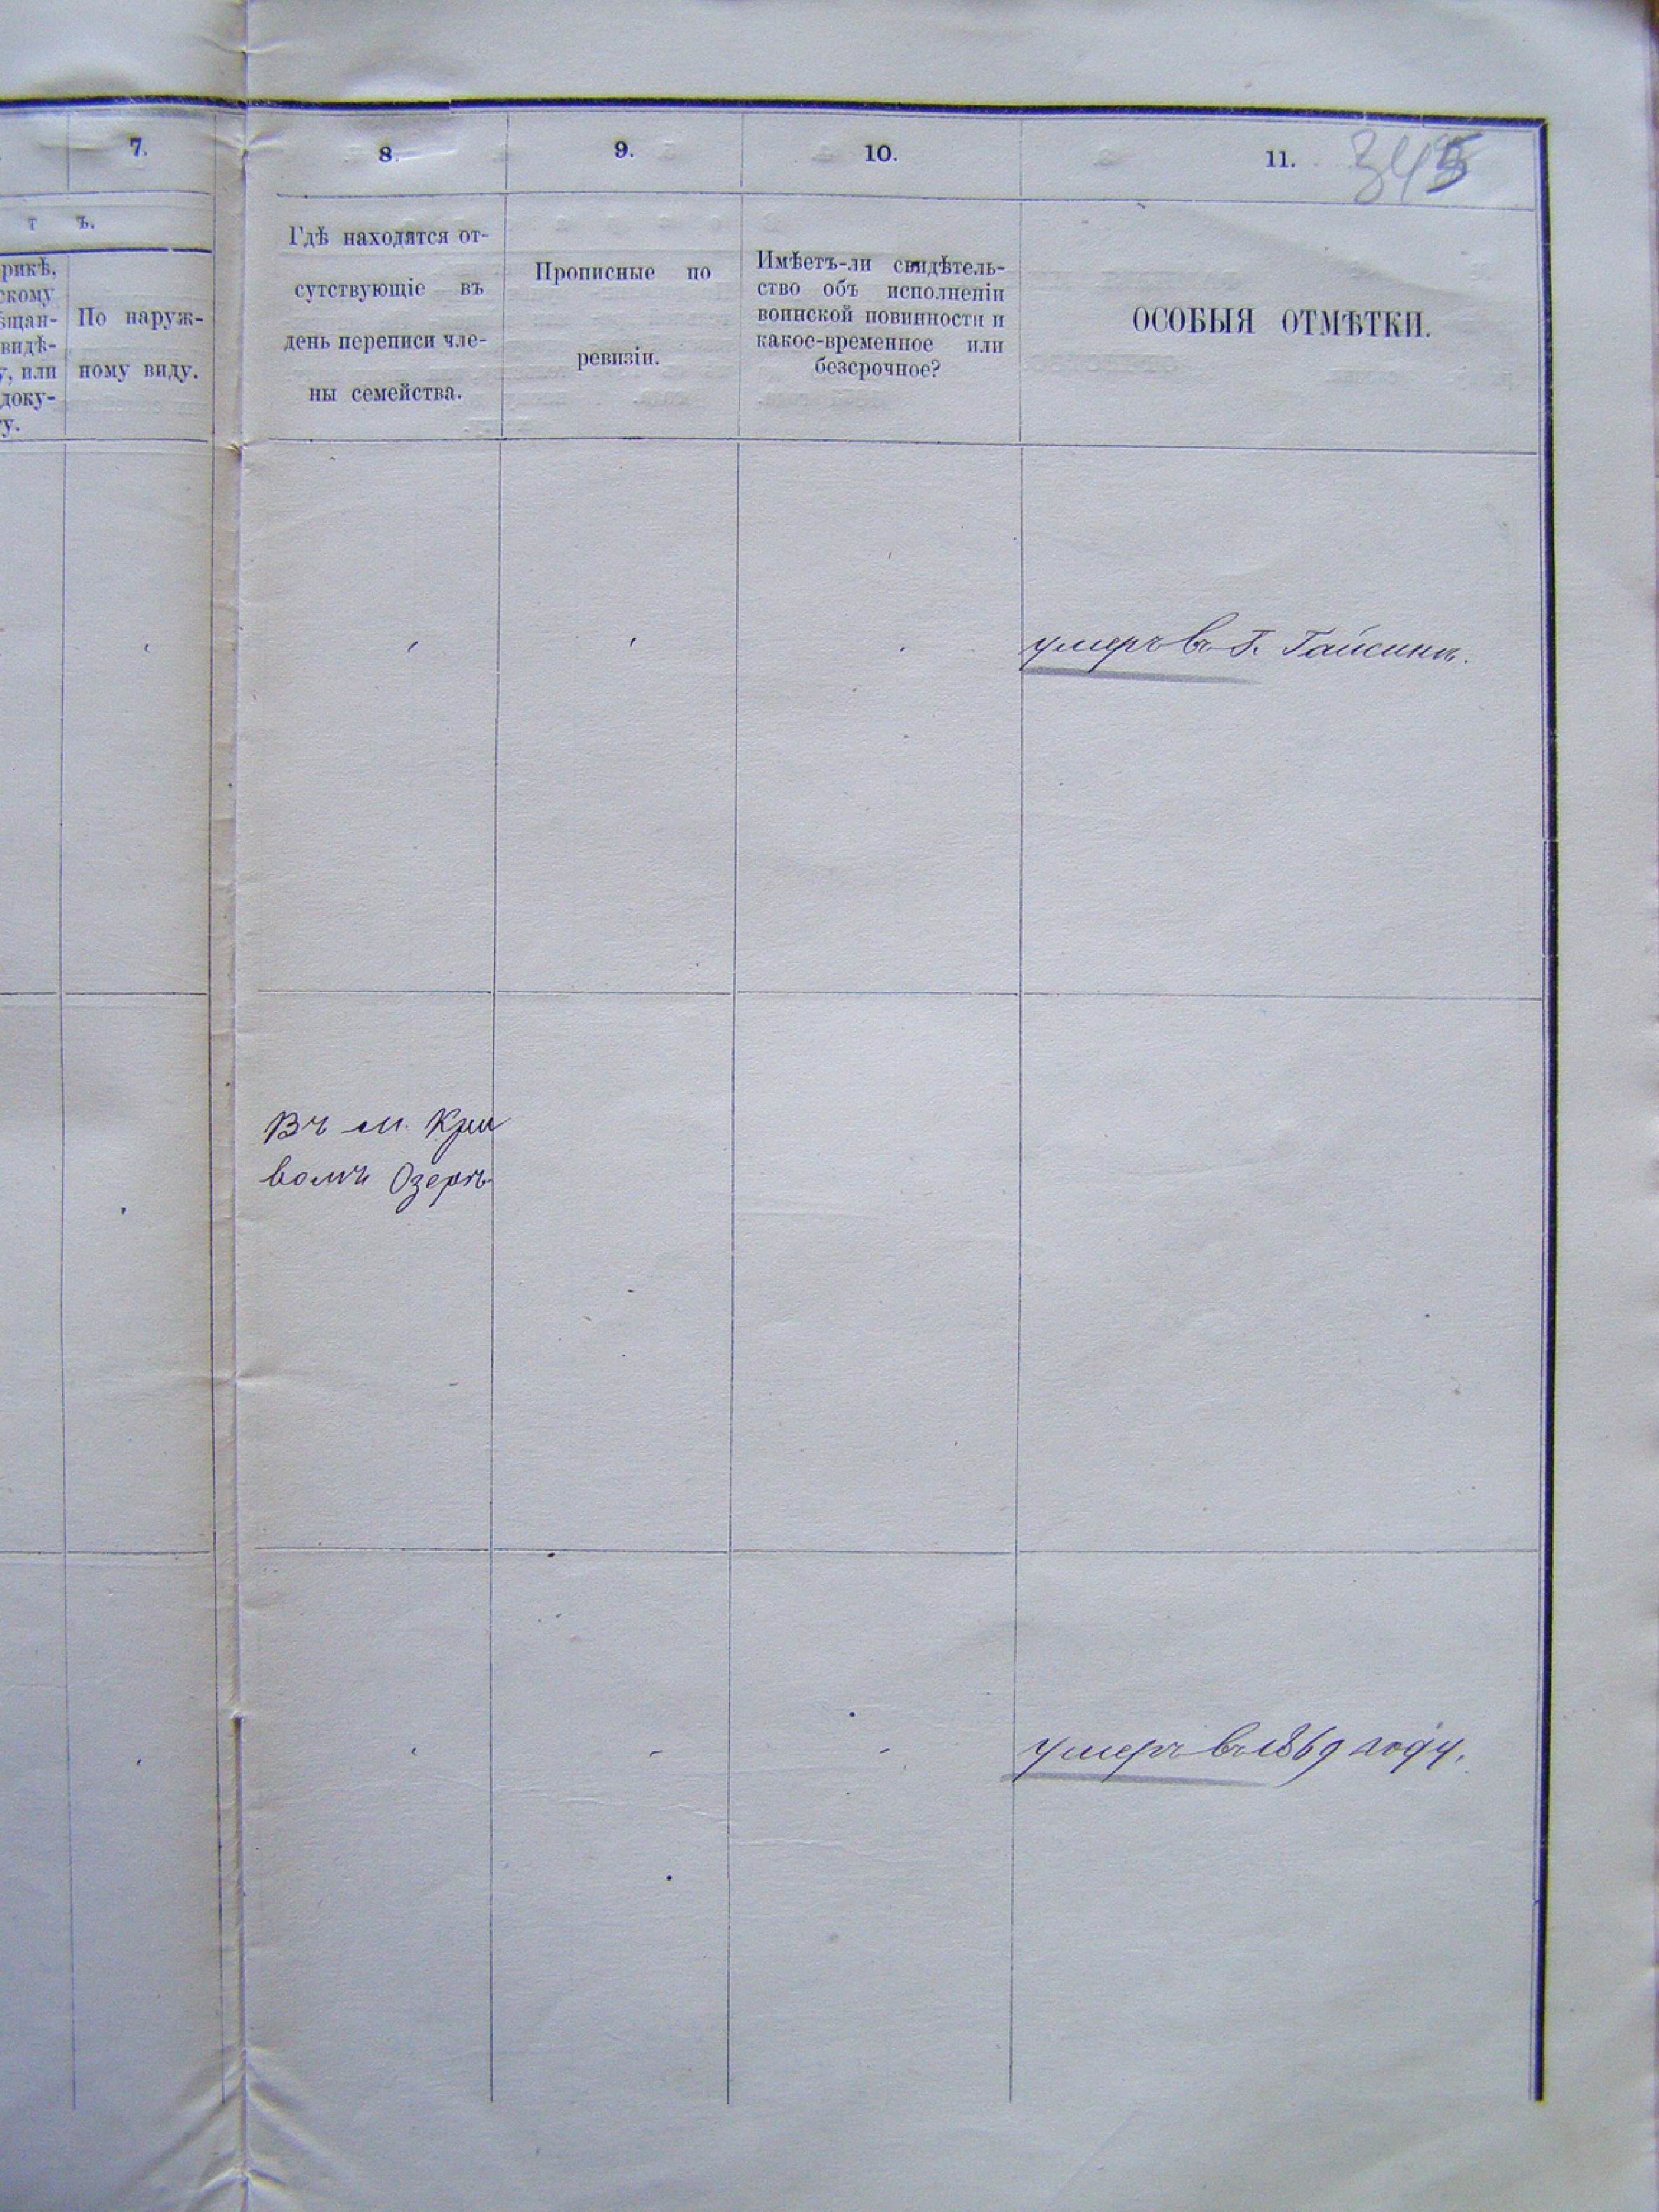 345
7.
8.
9.
10.
11.
т ъ.
рикѣ,
скому
ѣщан-
видѣ-
у, или
доку-
у.
По наруж-
ному виду.
Гдѣ находятся от-
сутствующіе въ
день переписи чле-
ны семейства.
Прописные по
ревизіи.
Имѣетъ-ли свидѣтель-
ство объ исполненіи
воинской повинности и
какое-временное или
безсрочное?
ОСОБЫЯ ОТМѢТКИ.
умеръ въ г. Гайсинѣ.
Въ м. Кри
вомъ Озерѣ
умеръ въ 1869 году.